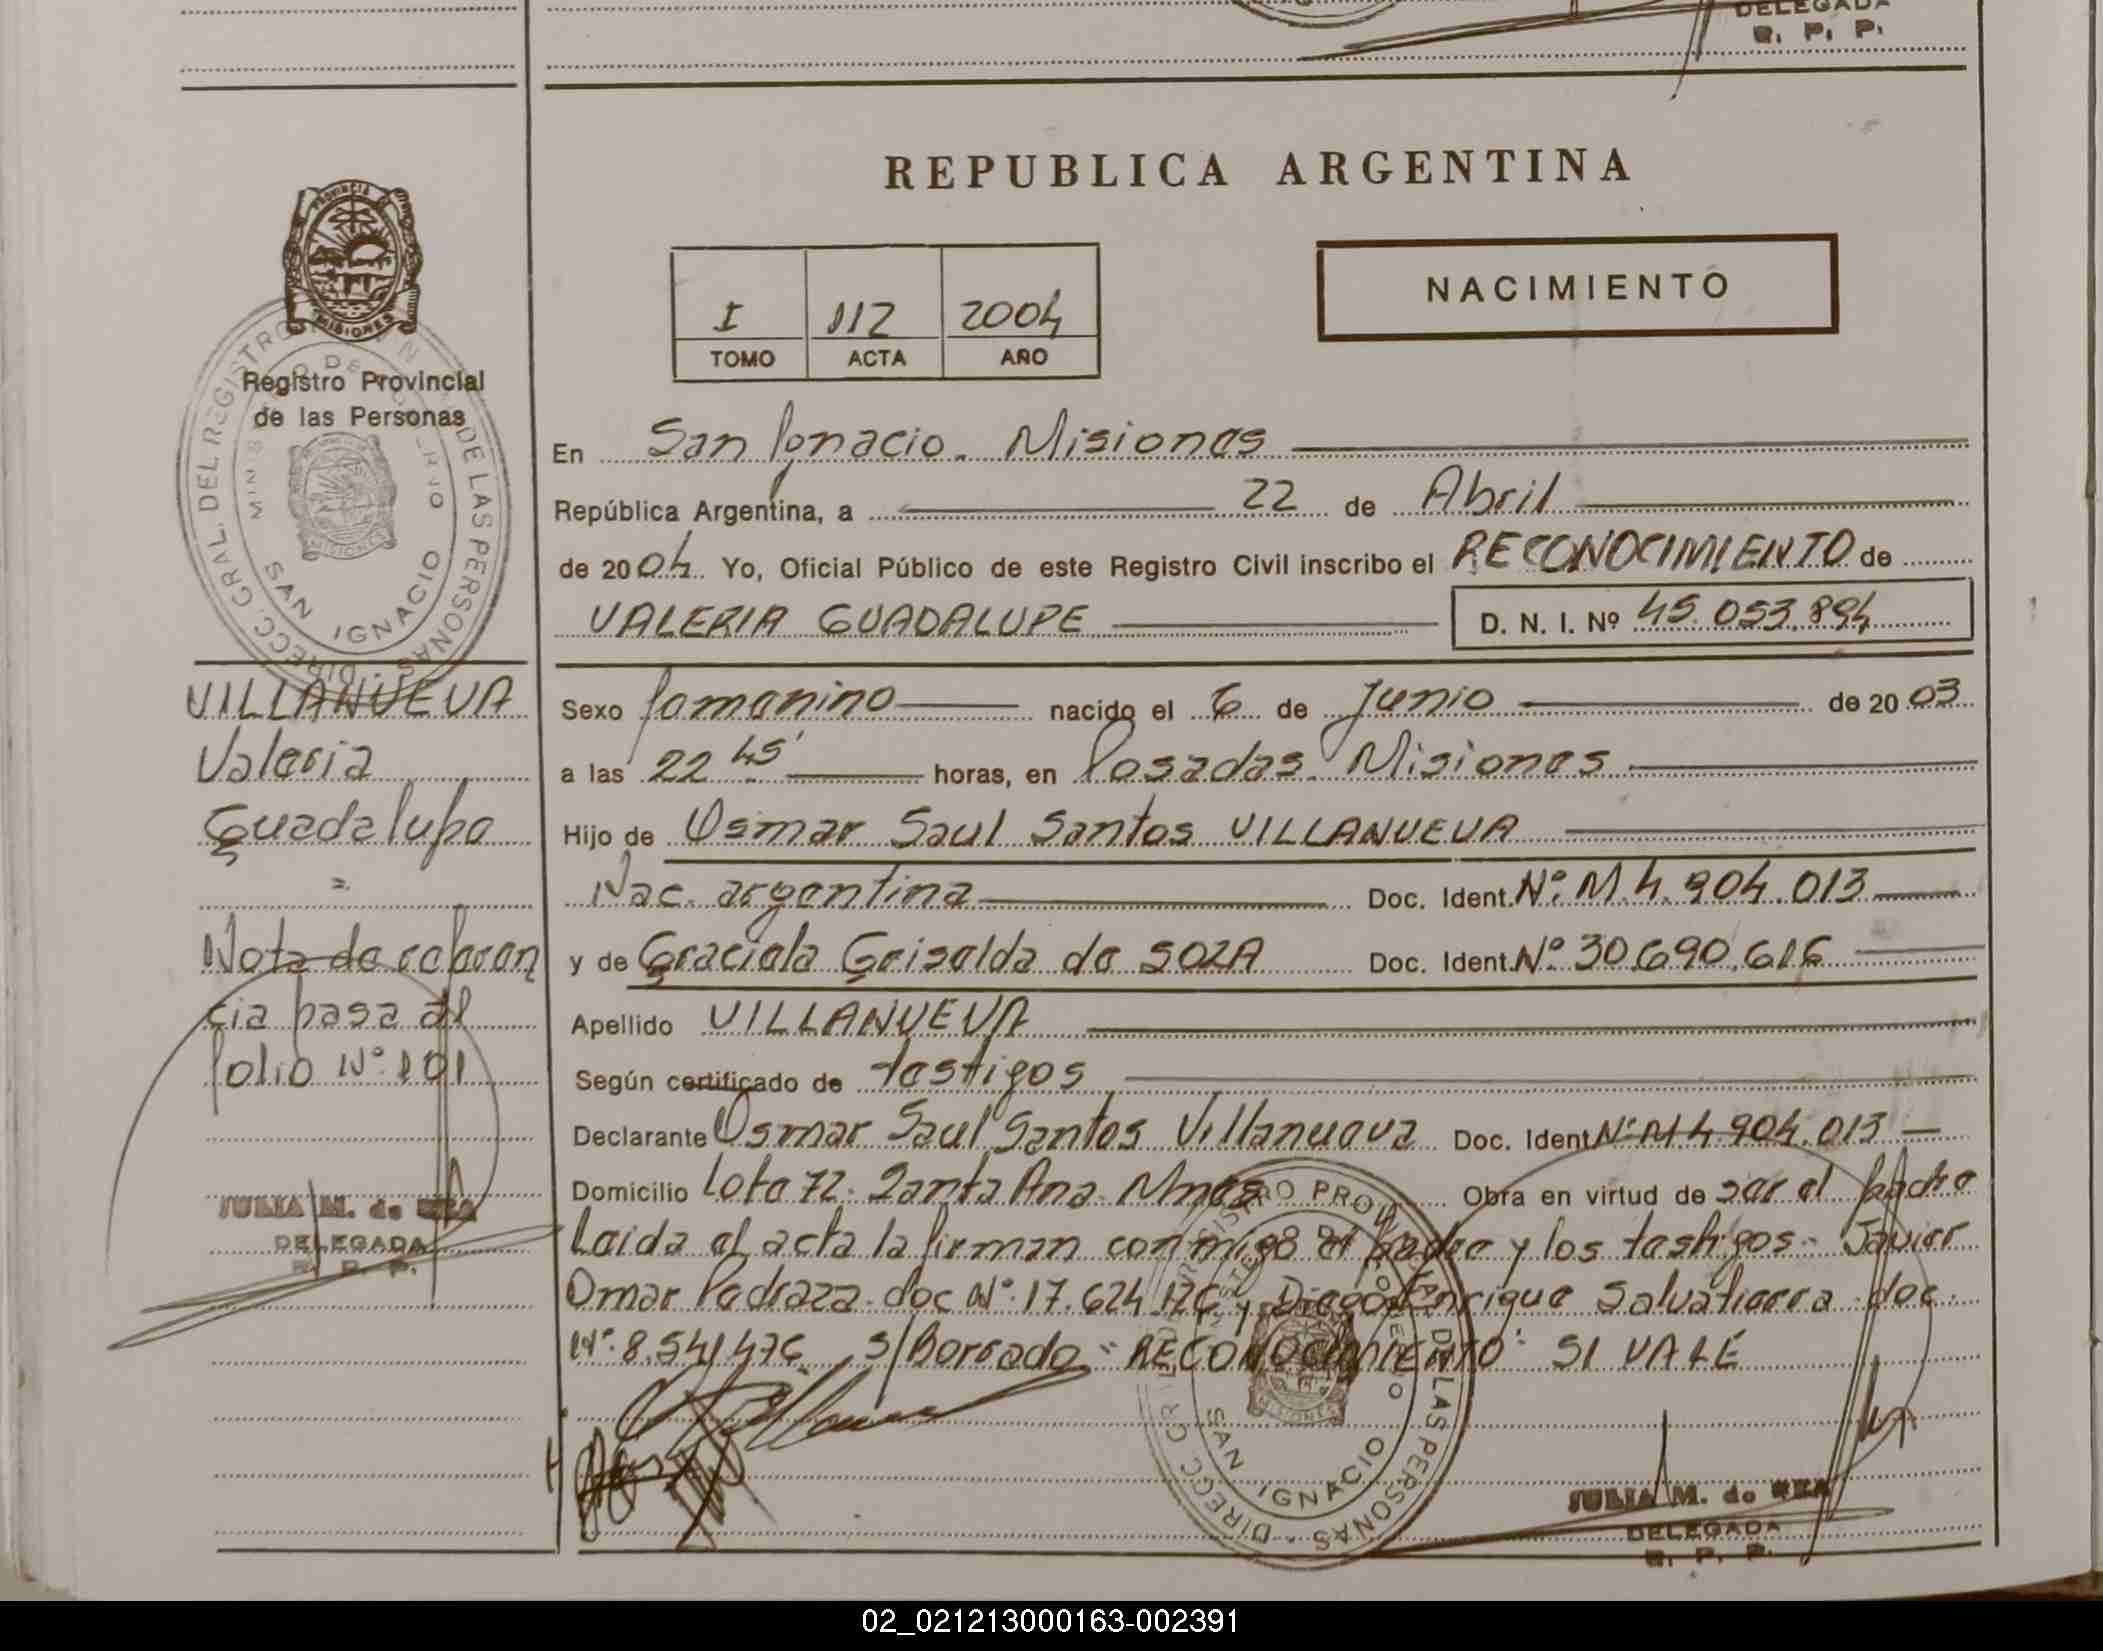 DELEGADA
R. P. P.
REPUBLICA ARGENTINA
NACIMIENTO
I 112 2004
TOMO ACTA AÑO
PROVINCIA
MISIONES
Registro Provincial
de las Personas
DIRECC. GRAL. DEL REGISTRO DE LAS PERSONAS
SAN IGNACIO
VILLANUEVA
Valeria
Guadalupe
=
Nota de referen
cia pasa al
folio Nº 101
JULIA M. de REA
DELEGADA
R. P. P.
En San Ignacio. Misiones
República Argentina, a 22 de Abril
de 2004 Yo, Oficial Público de este Registro Civil inscribo el RECONOCIMIENTO de
VALERIA GUADALUPE D. N. I. Nº 45.053.894
Sexo femenino nacido el 6 de Junio de 2003
a las 22 45' horas, en Posadas. Misiones
Hijo de Osmar Saul Santos VILLANUEVA
Nac. argentina Doc. Ident. Nº M.4.904.013
y de Graciela Griselda de SOZA Doc. Ident. Nº 30.690.616
Apellido VILLANUEVA
Según certificado de testigos
Declarante Osmar Saul Santos Villanueva Doc. Ident. Nº M 4.904.013
Domicilio Lote 72. Santa Ana. Mnes Obra en virtud de ser el padre
Leida el acta la firman conmigo el padre y los testigos. Javier
Omar Pedraza. doc Nº 17.624.126 y Diego Enrique Salvatierra doc.
Nº 8.541.476 S/Borrado "RECONOCIMIENTO" SI VALE
DIRECC. REGISTRO PROVINCIAL DE LAS PERSONAS
SAN IGNACIO
MISIONES
JULIA M. de REA
DELEGADA
R. P. P.
02_021213000163-002391